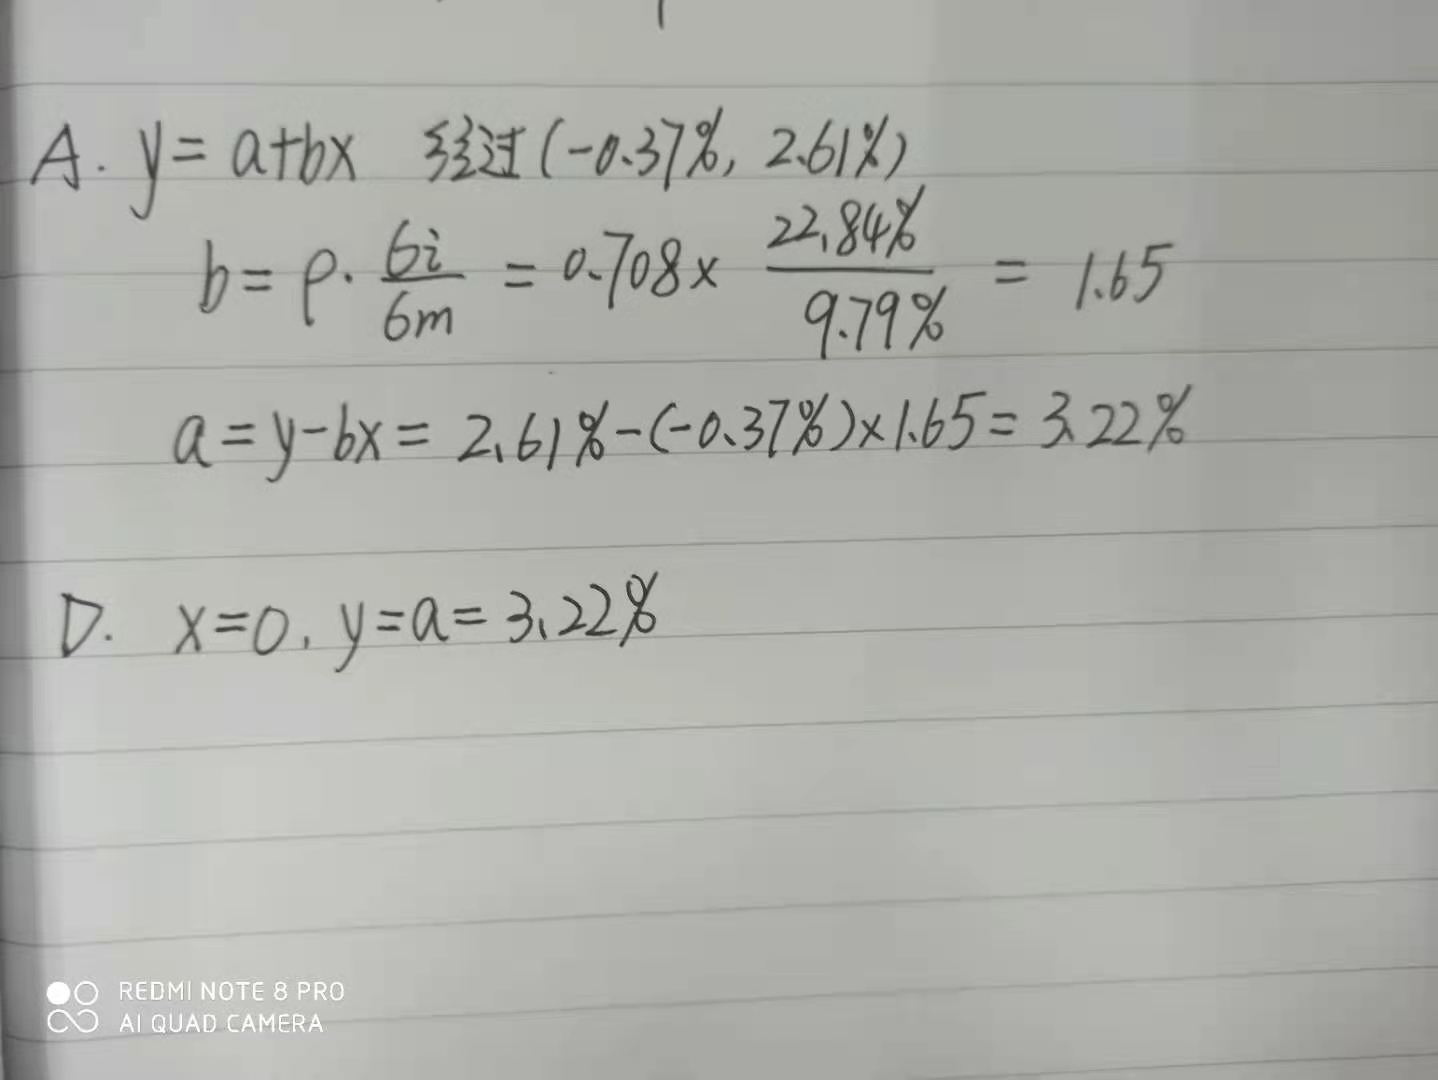 A. y = a+bx 经过(-0.37%, 2.61%)
b = ρ. 6i/6m = 0.708x 22.84%/9.79% = 1.65
a = y-bx = 2.61%-(-0.37%)x1.65= 3.22%
D. x=0. y=a= 3.22%
REDMI NOTE 8 PRO
AI QUAD CAMERA